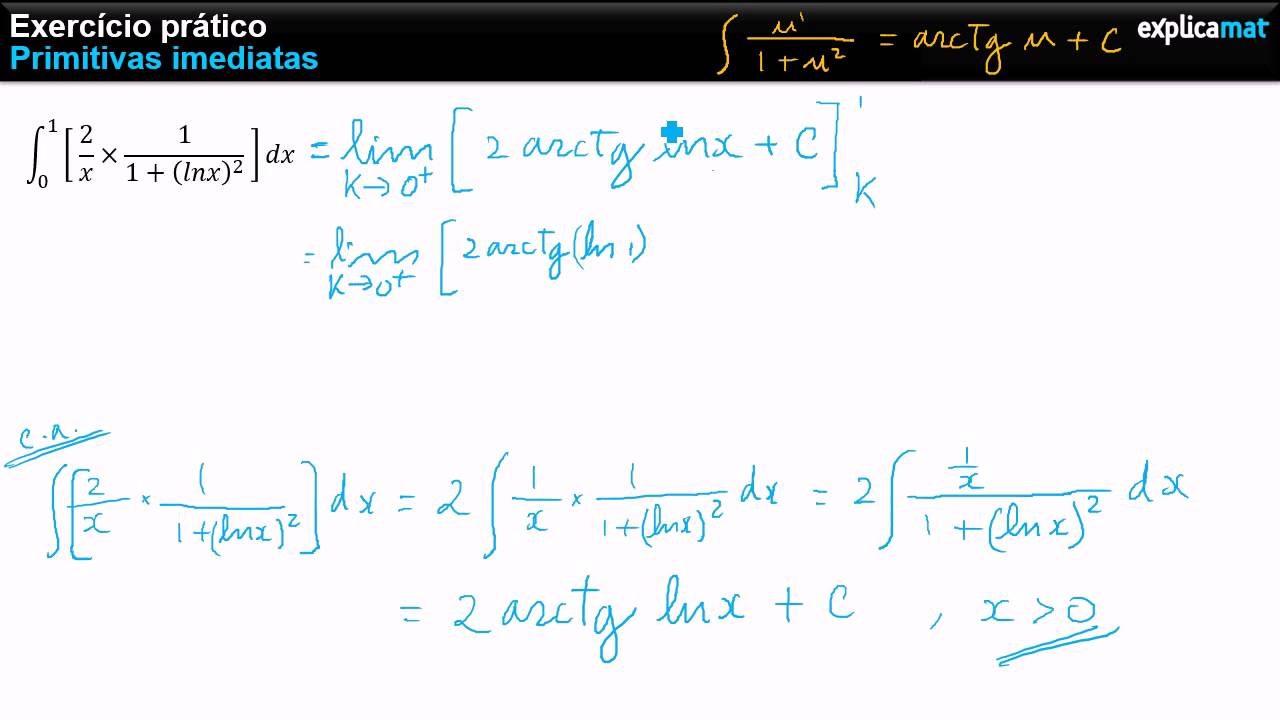 Exercício prático
Primitivas imediatas
∫ u'/(1+u²) = arctg u + C
explicamat
∫₀¹ [2/x × 1/(1+(lnx)²)] dx = lim K→0⁺ [2 arctg lnx + C]₍K₎¹
= lim K→0⁺ [2 arctg(ln 1)
c.a.
∫[2/x × 1/(1+(lnx)²)] dx = 2 ∫ 1/x × 1/(1+(lnx)²) dx = 2 ∫ (1/x)/(1+(lnx)²) dx
= 2 arctg lnx + C , x > 0